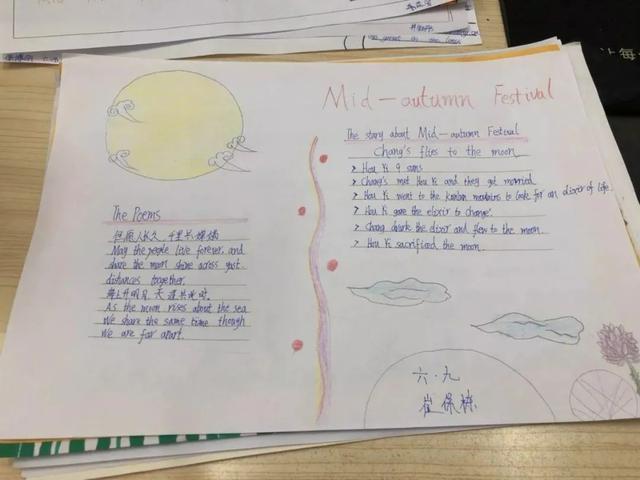 Mid-autumn Festival
The story about Mid-autumn Festival
Chang's flies to the moon
> Hou Yi 9 suns
> Chang's met Hou Yi and they got married.
> Hou Yi went to the kunlun mountains to look for an elixir of life.
> Hou Yi gave the elixir to change.
> Chang drank the elixir and flew to the moon.
> Hou Yi sacrificed the moon.
The Poems
但愿人长久,千里共婵娟
May the people live forever, and
share the moon shine across
distances together.
海上升明月 天涯共此时
As the moon rises about the sea
We share the same time though
We are far apart.
六·九
崔保